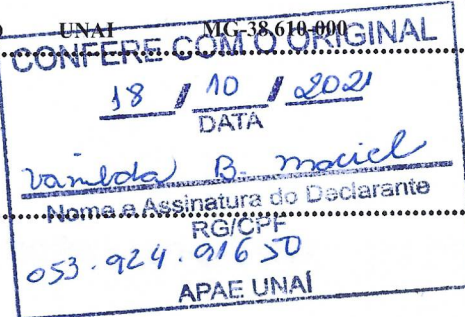 UNAI MG-38.610-000
CONFERE COM O ORIGINAL
18 / 10 / 2021
DATA
B. maciel
Nome e Assinatura do Declarante
RG/CPF
053.924.916 50
APAE UNAÍ